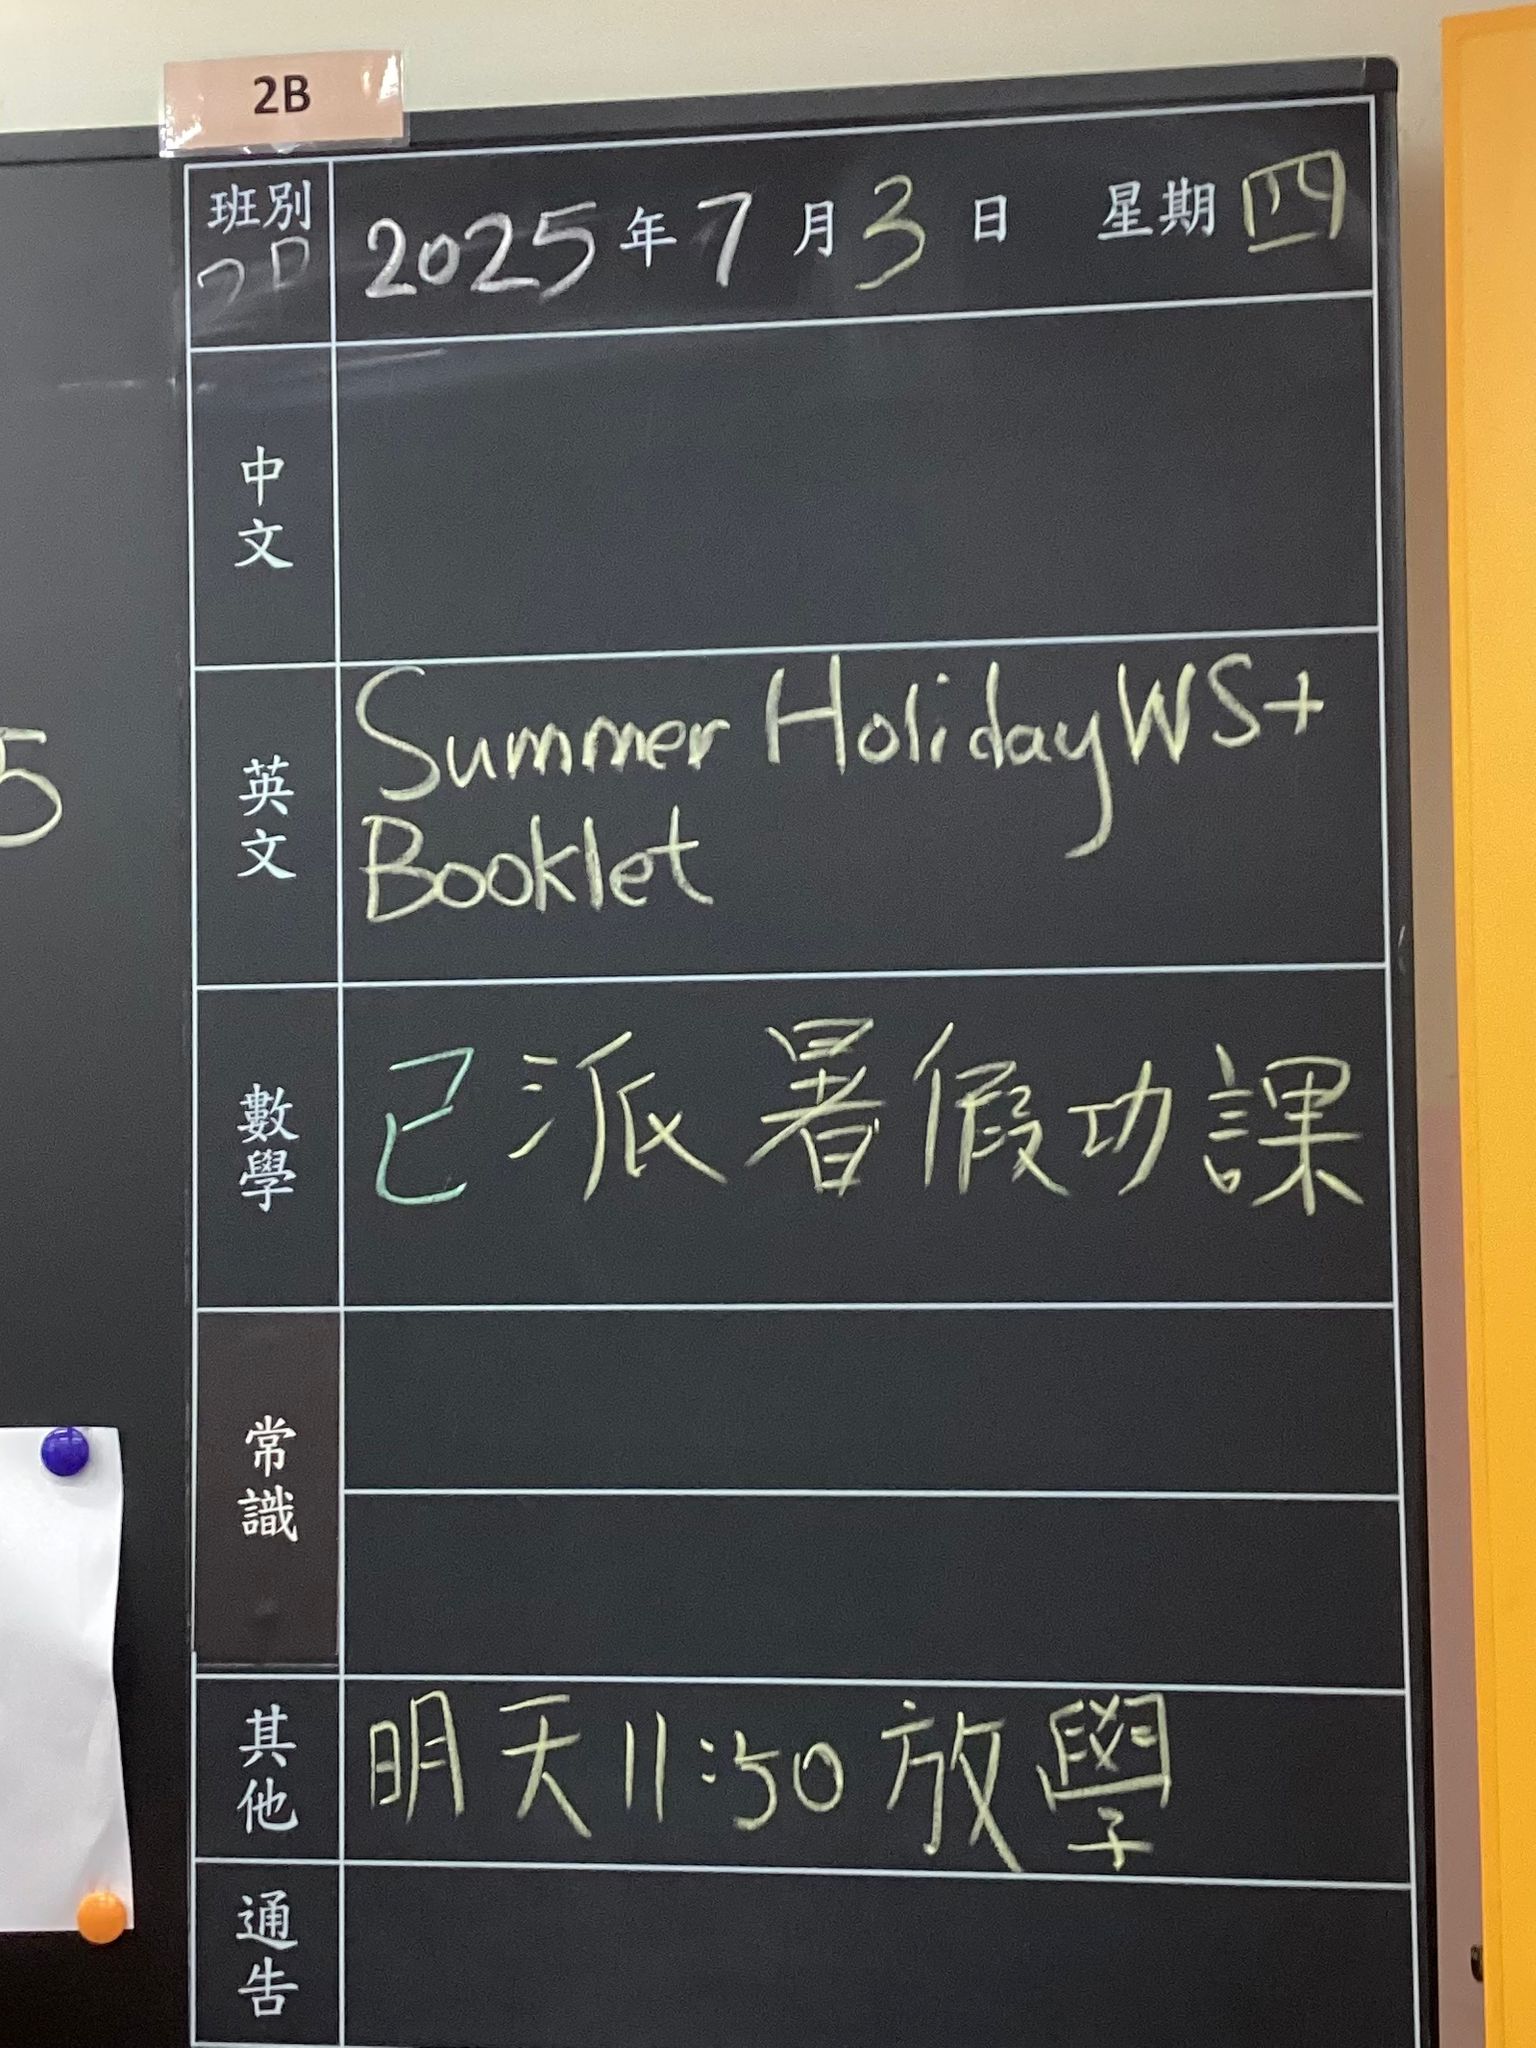 2B
班別 2025年7月3日 星期四
中文
英文 Summer Holiday WS+
Booklet
數學 已派暑假功課
常識
其他 明天11:50放學
通告
5